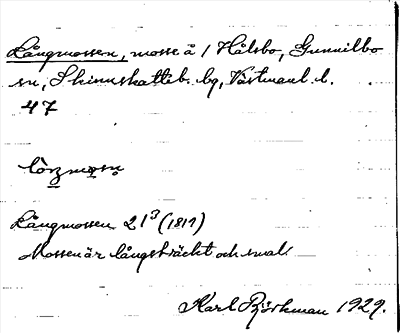 Långmossen, mosse å 1 Hålsbo, Gunnilbo
sn, Skinnskatteb. bg, Västmanl. l.
47
Långmossen 21³ (1817)
Mossen är långsträckt och smal
Karl Björkman 1929.